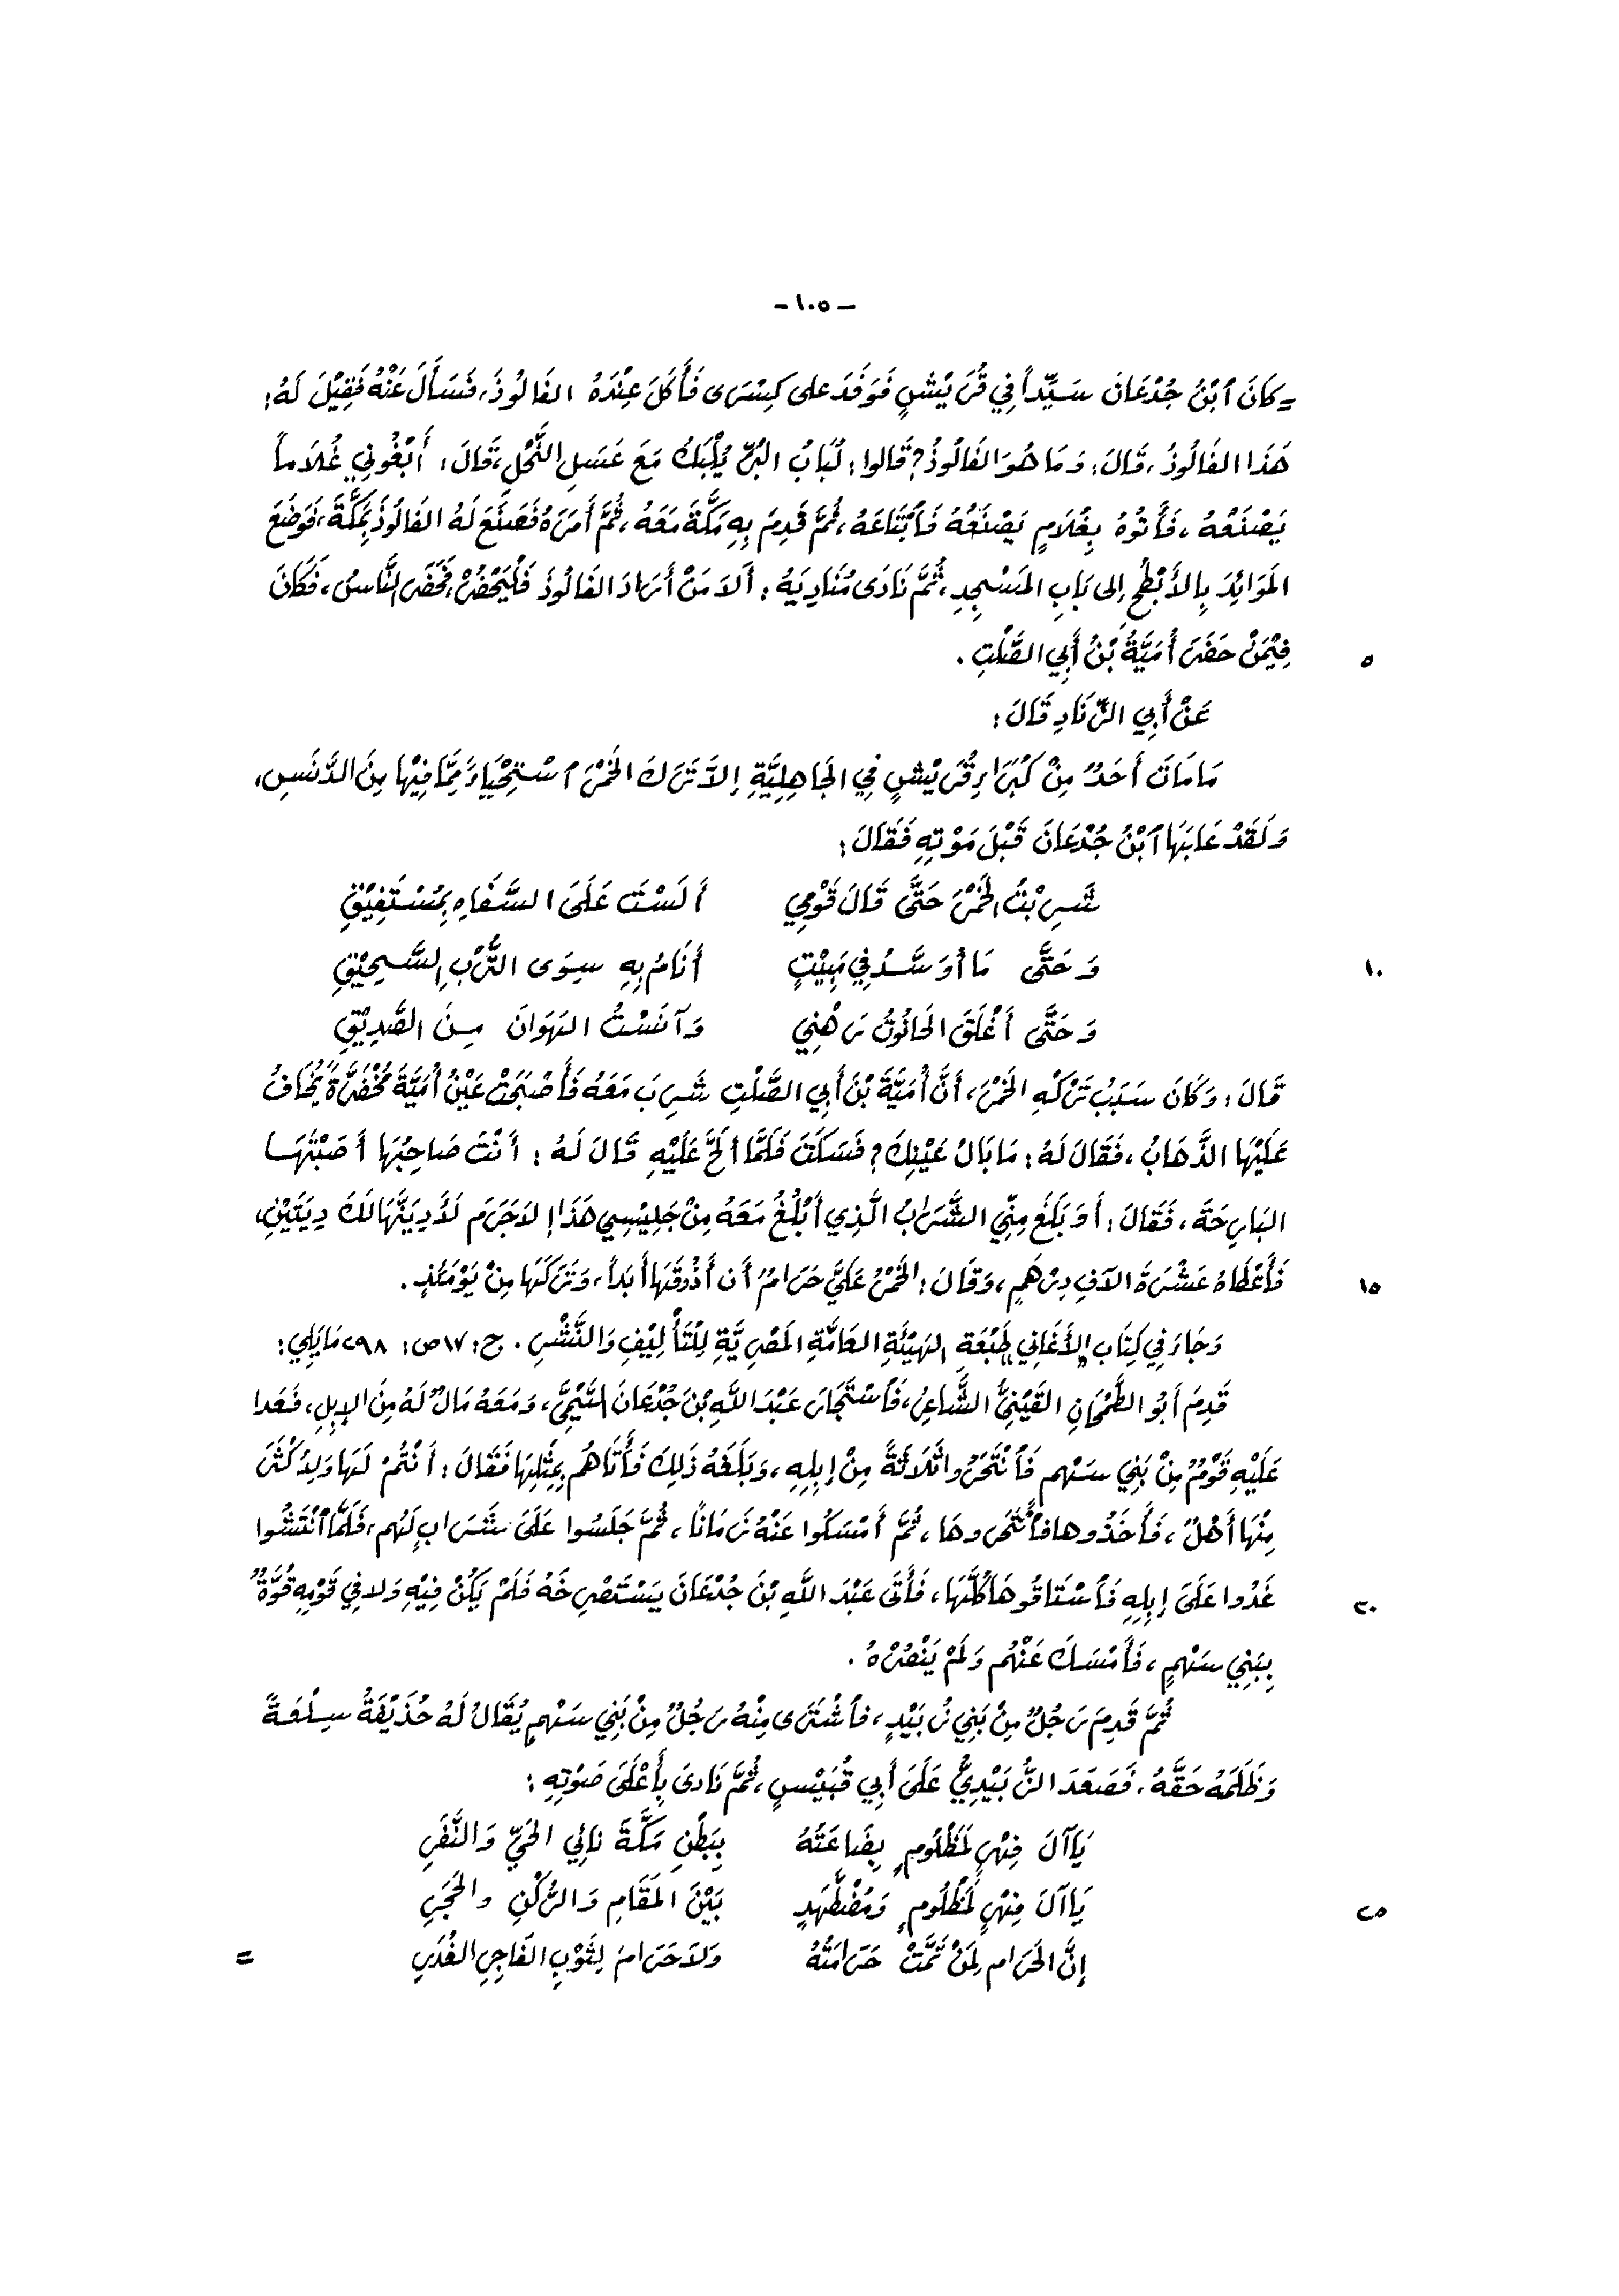 - ١٠٥ -
= كَانَ ٱبْنُ جُدْعَانَ سَيِّداً فِي قُرَيْشٍ فَوَفَدَ على كِسْرَى فَأَكَلَ عِنْدَهُ الفَالُوذَ، فَسَأَلَ عَنْهُ فَقِيْلَ لَهُ:
هَذَا الفَالُوذُ، قَالَ: وَمَا هُوَ الفَالُوذُ؟ قَالوا: لُبَابُ البُرِّ يُلْبَكُ مَعَ عَسَلِ النَّحْلِ، قَالَ: أَبْغُونِي غُلَاماً
يَصْنَعُهُ، فَأَتُوهُ بِغُلَامٍ يَصْنَعُهُ فَٱبْتَاعَهُ، ثُمَّ قَدِمَ بِهِ مَكَّةَ مَعَهُ، ثُمَّ أَمَرَهُ فَصَنَعَ لَهُ الفَالُوذَ بِمَكَّةَ، فَوَضَعَ
المَوَائِدَ بِالأَبْطُحِ إلى بَابِ المَسْجِدِ، ثُمَّ نَادَى مُنَادِيَهُ: أَلَا مَنْ أَرَادَ الفَالُوذَ فَلْيَحْضُرْ، فَحَضَرَ النَّاسُ، فَكَانَ
فِيْمَنْ حَضَرَ أُمَيَّةُ بْنُ أَبِي الصَّلْتِ.
٥
عَنْ أَبِي الزِّنَادِ قَالَ:
مَا مَاتَ أَحَدٌ مِنْ كُبَرَاءِ قُرَيْشٍ فِي الجَاهِلِيَّةِ إلَّا تَرَكَ الخَمْرَ ٱسْتِحْيَاءً مِمَّا فِيْهَا مِنَ الدَّنَسِ،
وَلَقَدْ عَابَهَا ٱبْنُ جُدْعَانَ قَبْلَ مَوْتِهِ فَقَالَ:
شَرِبْتُ الخَمْرَ حَتَّى قَالَ قَوْمِي أَلَسْتَ عَلَى السَّفَاهِ بِمُسْتَفِيْقِ
وَحَتَّى مَا أُوَسَّدُ فِي مَبِيْتٍ أَنَامُ بِهِ سِوَى التُّرْبِ السَّحِيْقِ
١٠
وَحَتَّى أَغْلَقَ الحَانُوتُ رَهْنِي وَآنَسْتُ الهَوَانَ مِنَ الصَّدِيْقِ
قَالَ: وَكَانَ سَبَبُ تَرْكِهِ الخَمْرَ، أَنَّ أُمَيَّةَ بْنَ أَبِي الصَّلْتِ شَرِبَ مَعَهُ فَأَصْبَحَتْ عَيْنُ أُمَيَّةَ مُخْضَرَّةً يُخَافُ
عَلَيْهَا الذَّهَابُ، فَقَالَ لَهُ: مَا بَالُ عَيْنِكَ؟ فَسَكَتَ فَلَمَّا أَلَحَّ عَلَيْهِ قَالَ لَهُ: أَنْتَ صَاحِبُهَا أَصَبْتَهَا
البَارِحَةَ، فَقَالَ: أَوَ بَلَغَ مِنِّي الشَّرَابُ الَّذِي أَبْلُغُ مَعَهُ مِنْ جَلِيْسِي هَذَا! لَا جَرَمَ لَأَدِيَنَّهَا لَكَ دِيَتَيْنِ،
فَأَعْطَاهُ عَشْرَةَ آلَافِ دِرْهَمٍ، وَقَالَ: الخَمْرُ عَلَيَّ حَرَامٌ أَن أَذُوقَهَا أَبَداً، وَتَرَكَهَا مِنْ يَوْمَئِذٍ.
١٥
وَجَاءَ فِي كِتَابِ "الأَغَانِي" طَبْعَةِ الهَيْئَةِ العَامَّةِ المَصْرِيَّةِ لِلْتَأْلِيْفِ وَالنَّشْرِ. ج: ١٧ ص: ٢٩٨ مَا يَلِي:
قَدِمَ أَبُو الطَّمْحَانِ القَيْنِيُّ الشَّاعِرُ، فَٱسْتَجَارَ عَبْدَ اللَّهِ بْنَ جُدْعَانَ التَّيْمِيَّ، وَمَعَهُ مَالٌ لَهُ مِنَ الإبِلِ، فَعَدا
عَلَيْهِ قَوْمٌ مِنْ بَنِي سَهْمٍ فَٱنْتَحَرُوا ثَلَاثَةً مِنْ إبِلِهِ، وَبَلَغَهُ ذَلِكَ فَأَتَاهُم بِمِثْلِهَا فَقَالَ: أَنْتُمْ لَهَا وَلِأَكْثَرَ
مِنْهَا أَهْلٌ، فَأَخَذُوها فَٱنْتَحَرُوهَا، ثُمَّ أَمْسَكُوا عَنْهُ زَمَاناً، ثُمَّ جَلَسُوا عَلَى شَرَابٍ لَهُم، فَلَمَّا ٱنْتَشُوا
غَدُوا عَلَى إبِلِهِ فَٱسْتَاقُوهَا كُلَّهَا، فَأَتَى عَبْدَ اللَّهِ بْنَ جُدْعَانَ يَسْتَصْرِخَهُ فَلَمْ يَكُنْ فِيْهِ وَلا فِي قَوْمِهِ قُوَّةٌ
٢٠
بِبَنِي سَهْمٍ، فَأَمْسَكَ عَنْهُم وَلَمْ يَنْصُرْهُ.
ثُمَّ قَدِمَ رَجُلٌ مِنْ بَنِي زُبَيْدٍ، فَٱشْتَرَى مِنْهُ رَجُلٌ مِنْ بَنِي سَهْمٍ يُقَالُ لَهُ حُذَيْفَةُ سِلْعَةً
وَظَلَمَهُ حَقَّهُ، فَصَعَدَ الزُّبَيْدِيُّ عَلَى أَبِي قُبَيْسٍ، ثُمَّ نَادَى بِأَعْلَى صَوْتِهِ:
يَا آلَ فِهْرٍ لِمَظْلُومٍ بِضَاعَتَهُ بِبَطْنِ مَكَّةَ نَائِي الحَيِّ وَالنَّفَرِ
يَا آلَ فِهْرٍ لِمَظْلُومٍ وَمُضْطَهَدٍ بَيْنَ المَقَامِ وَالرُّكْنِ والحَجَرِ
٢٥
إنَّ الحَرَام لِمَنْ تَمَّتْ حَرَامَتُهُ وَلَا حَرَامَ لِثَوْبِ الفَاجِرِ الغُدَرِ =